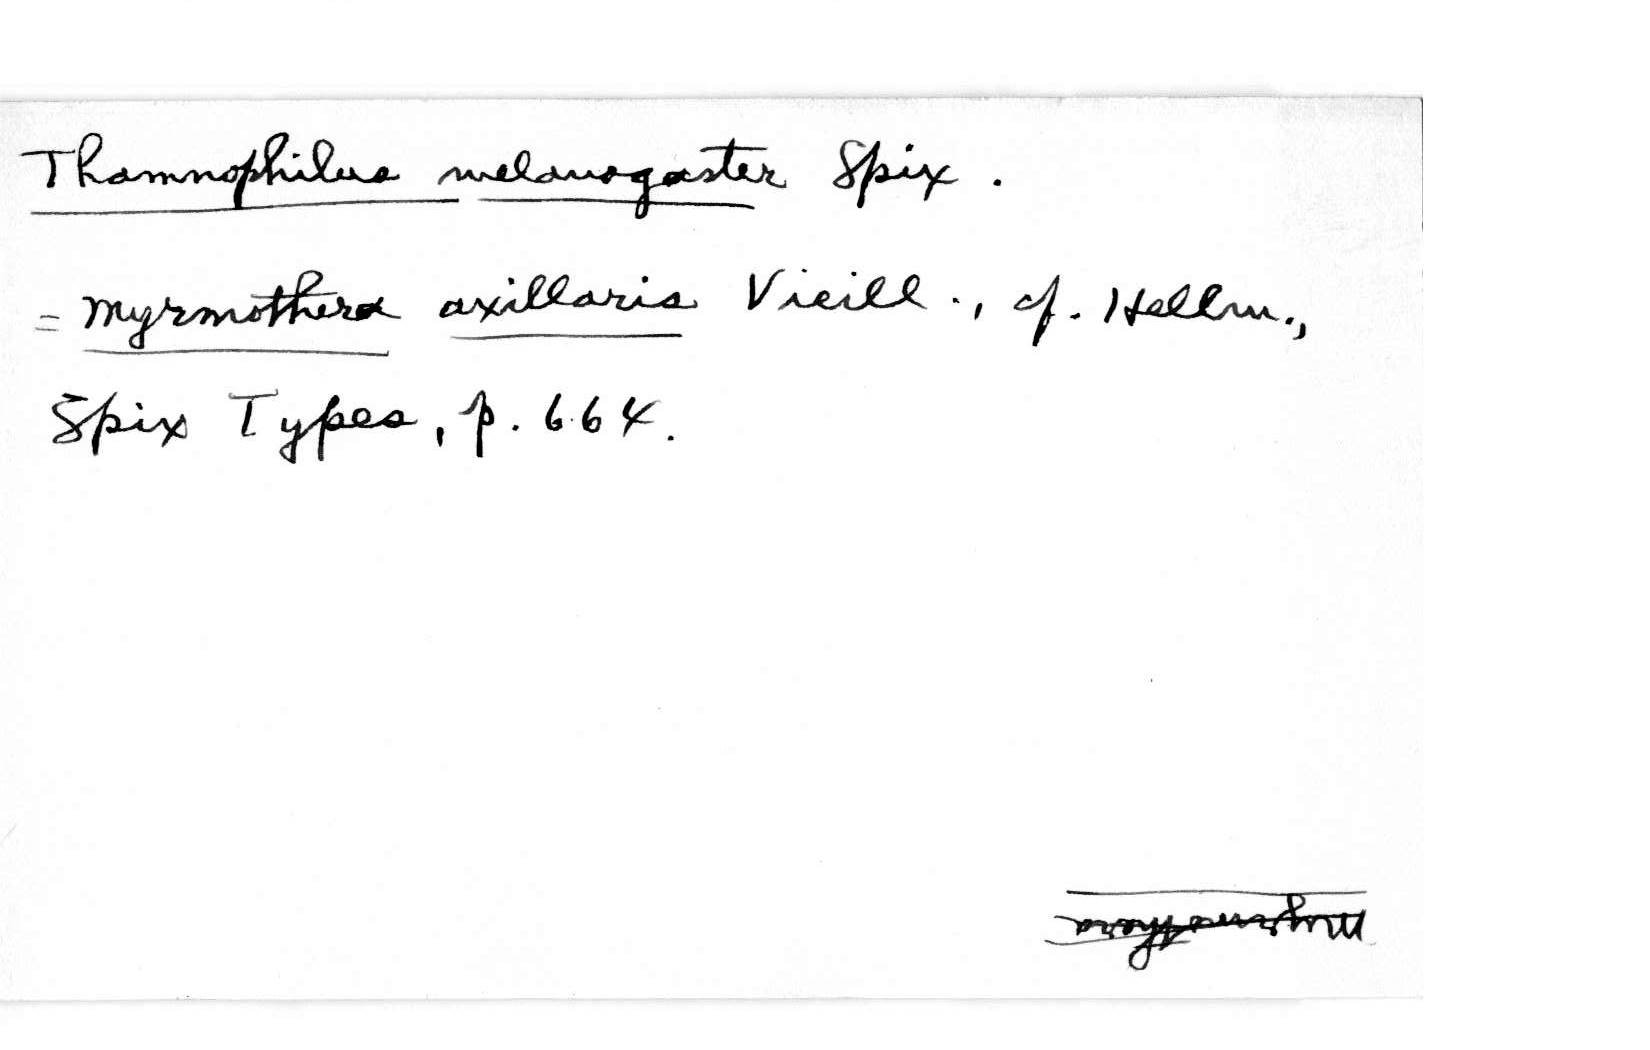 Thamnophilus melanogaster Spix.
= Myrmothera axillaris Vieill., cf. Hellm.,
Spix Types, p. 664.
Myrmothera